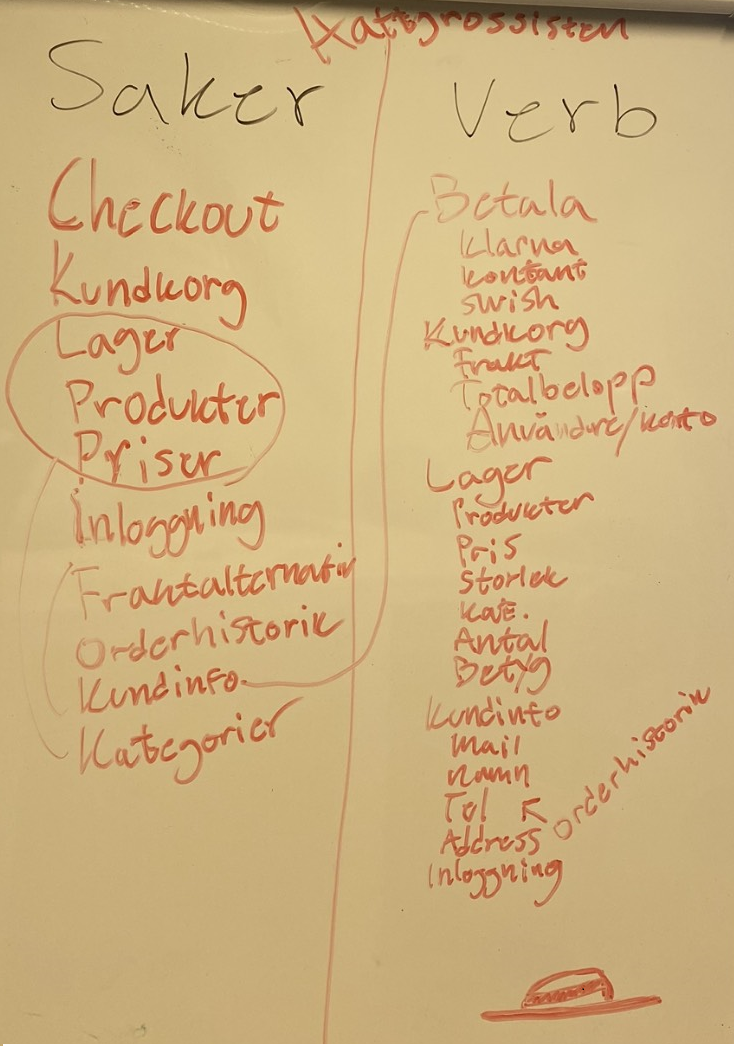 Hattgrossisten
Saker
Checkout
Kundkorg
Lager
Produkter
Priser
Inloggning
Fraktalternativ
Orderhistorik
Kundinfo
Kategorier
Verb
Betala
Klarna
Kontant
Swish
Kundkorg
Frakt
Totalbelopp
Användare/konto
Lager
Produkter
Pris
Storlek
Kat.
Antal
Betyg
Kundinfo
Mail
Namn
Tel
Address
Orderhistorik
Inloggning